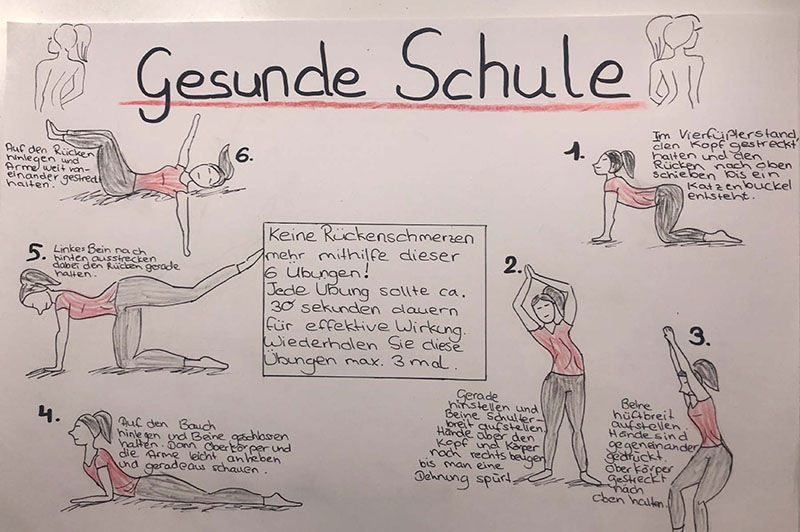 Gesunde Schule
1.
Im Vierfüßlerstand,
den Kopf gestreckt
halten und den
Rücken nach oben
schieben bis ein
Katzenbuckel
entsteht.
2.
Gerade
hinstellen und
Beine Schulter-
breit aufstellen.
Hände über den
Kopf und Körper
nach rechts beugen
bis man eine
Dehnung spürt.
3.
Beine
hüftbreit
aufstellen.
Hände sind
gegeneinander
gedrückt.
Oberkörper
gestreckt
nach
oben halten.
4.
Auf den Bauch
hinlegen und Beine geschlossen
halten. Dann Oberkörper und
die Arme leicht anheben
und geradeaus schauen.
5.
Linkes Bein nach
hinten ausstrecken
dabei den Rücken gerade
halten.
6.
Auf den Rücken
hinlegen und
Arme weit von-
einander gestreckt
halten.
Keine Rückenschmerzen
mehr mithilfe dieser
6 Übungen!
Jede Übung sollte ca.
30 sekunden dauern
für effektive Wirkung.
Wiederholen Sie diese
Übungen max. 3 mal.